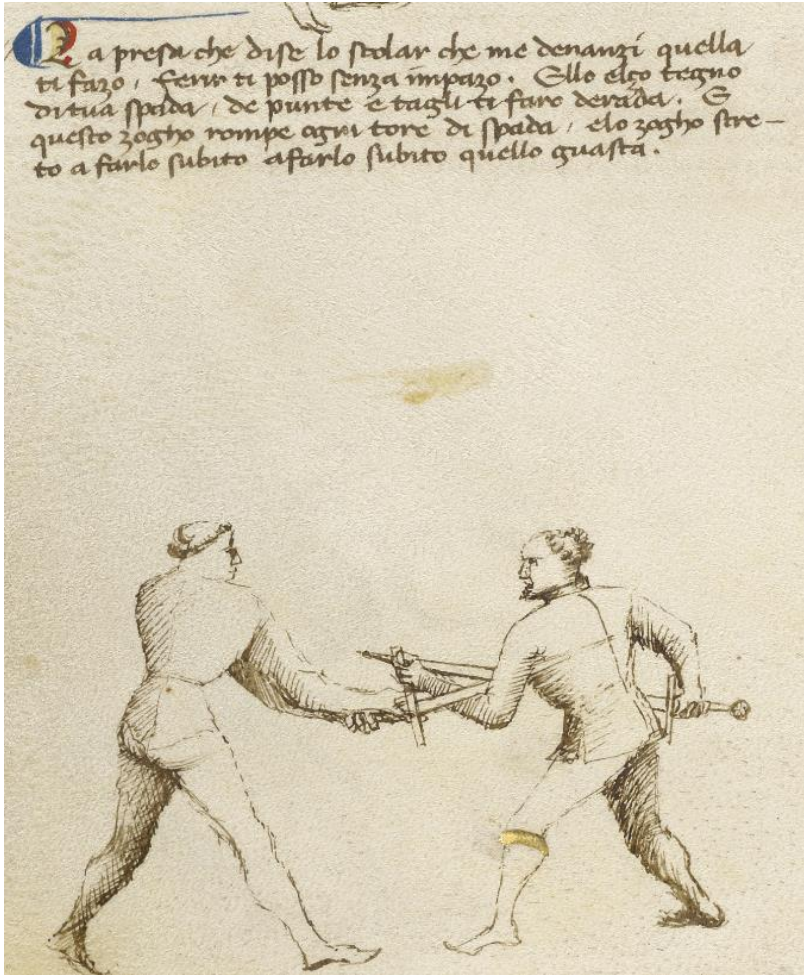 La presa che dise lo scolar che me denanzi quella
ti fazo, ferir ti posso senza impazo. Ello elço tegno
di tua spada, de punte e tagli ti faro derada. E
questo zogho rompe ogni tore di spada, elo zogho stre-
to a farlo subito afarlo subito quello guasta.